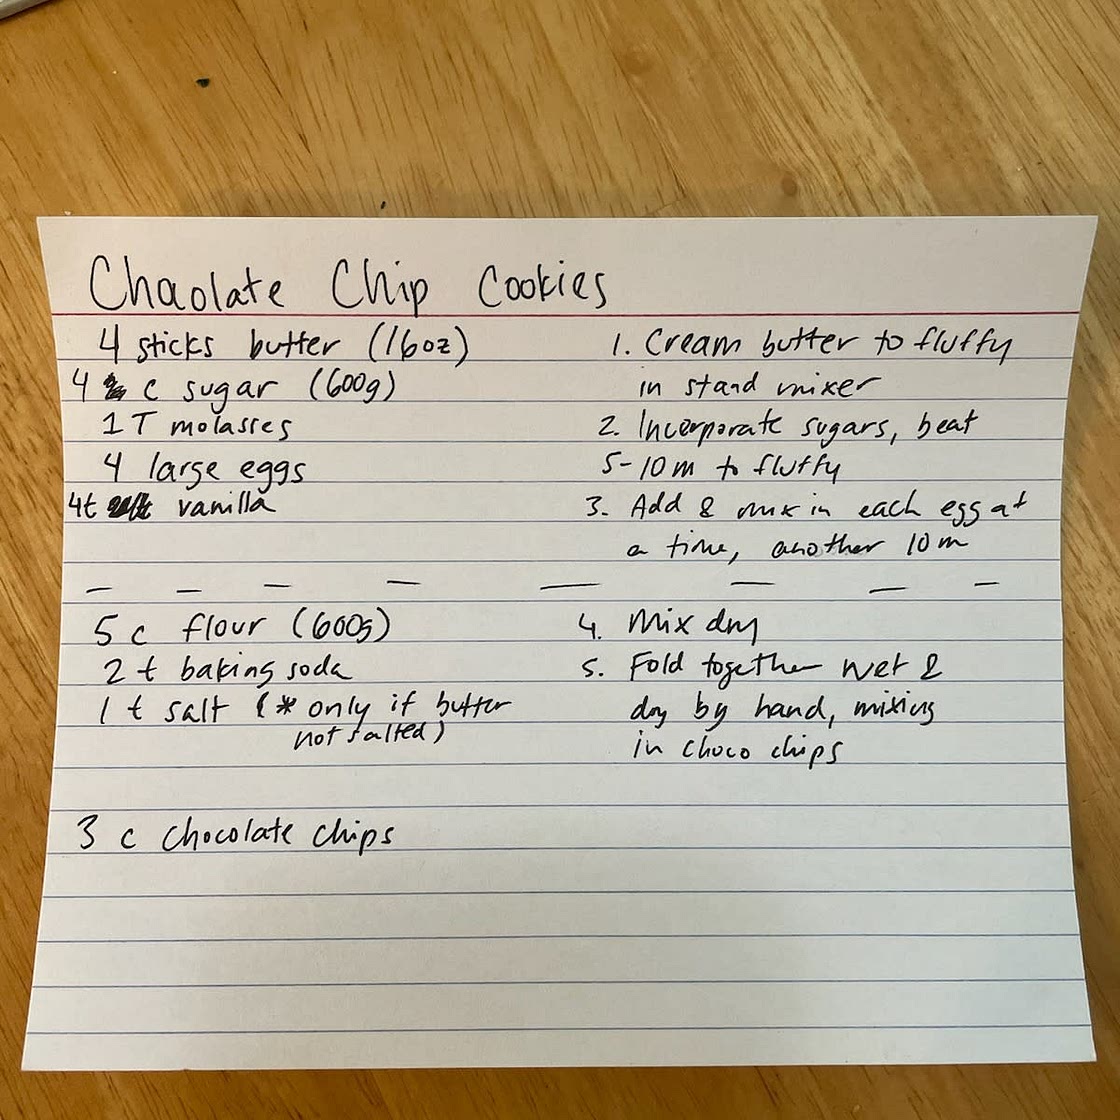 Chaolate Chip Cookies
4 sticks butter (16oz)
4 c sugar (600g)
1 T molasses
4 large eggs
4t vanilla
1. Cream butter to fluffy
in stand mixer
2. Incorporate sugars, beat
5-10m to fluffy
3. Add & mix in each egg at
a time, another 10m
5 c flour (600g)
2 t baking soda
1 t salt (* only if butter
not salted)
4. Mix dry
5. Fold together wet &
dry by hand, mixing
in choco chips
3 c chocolate chips